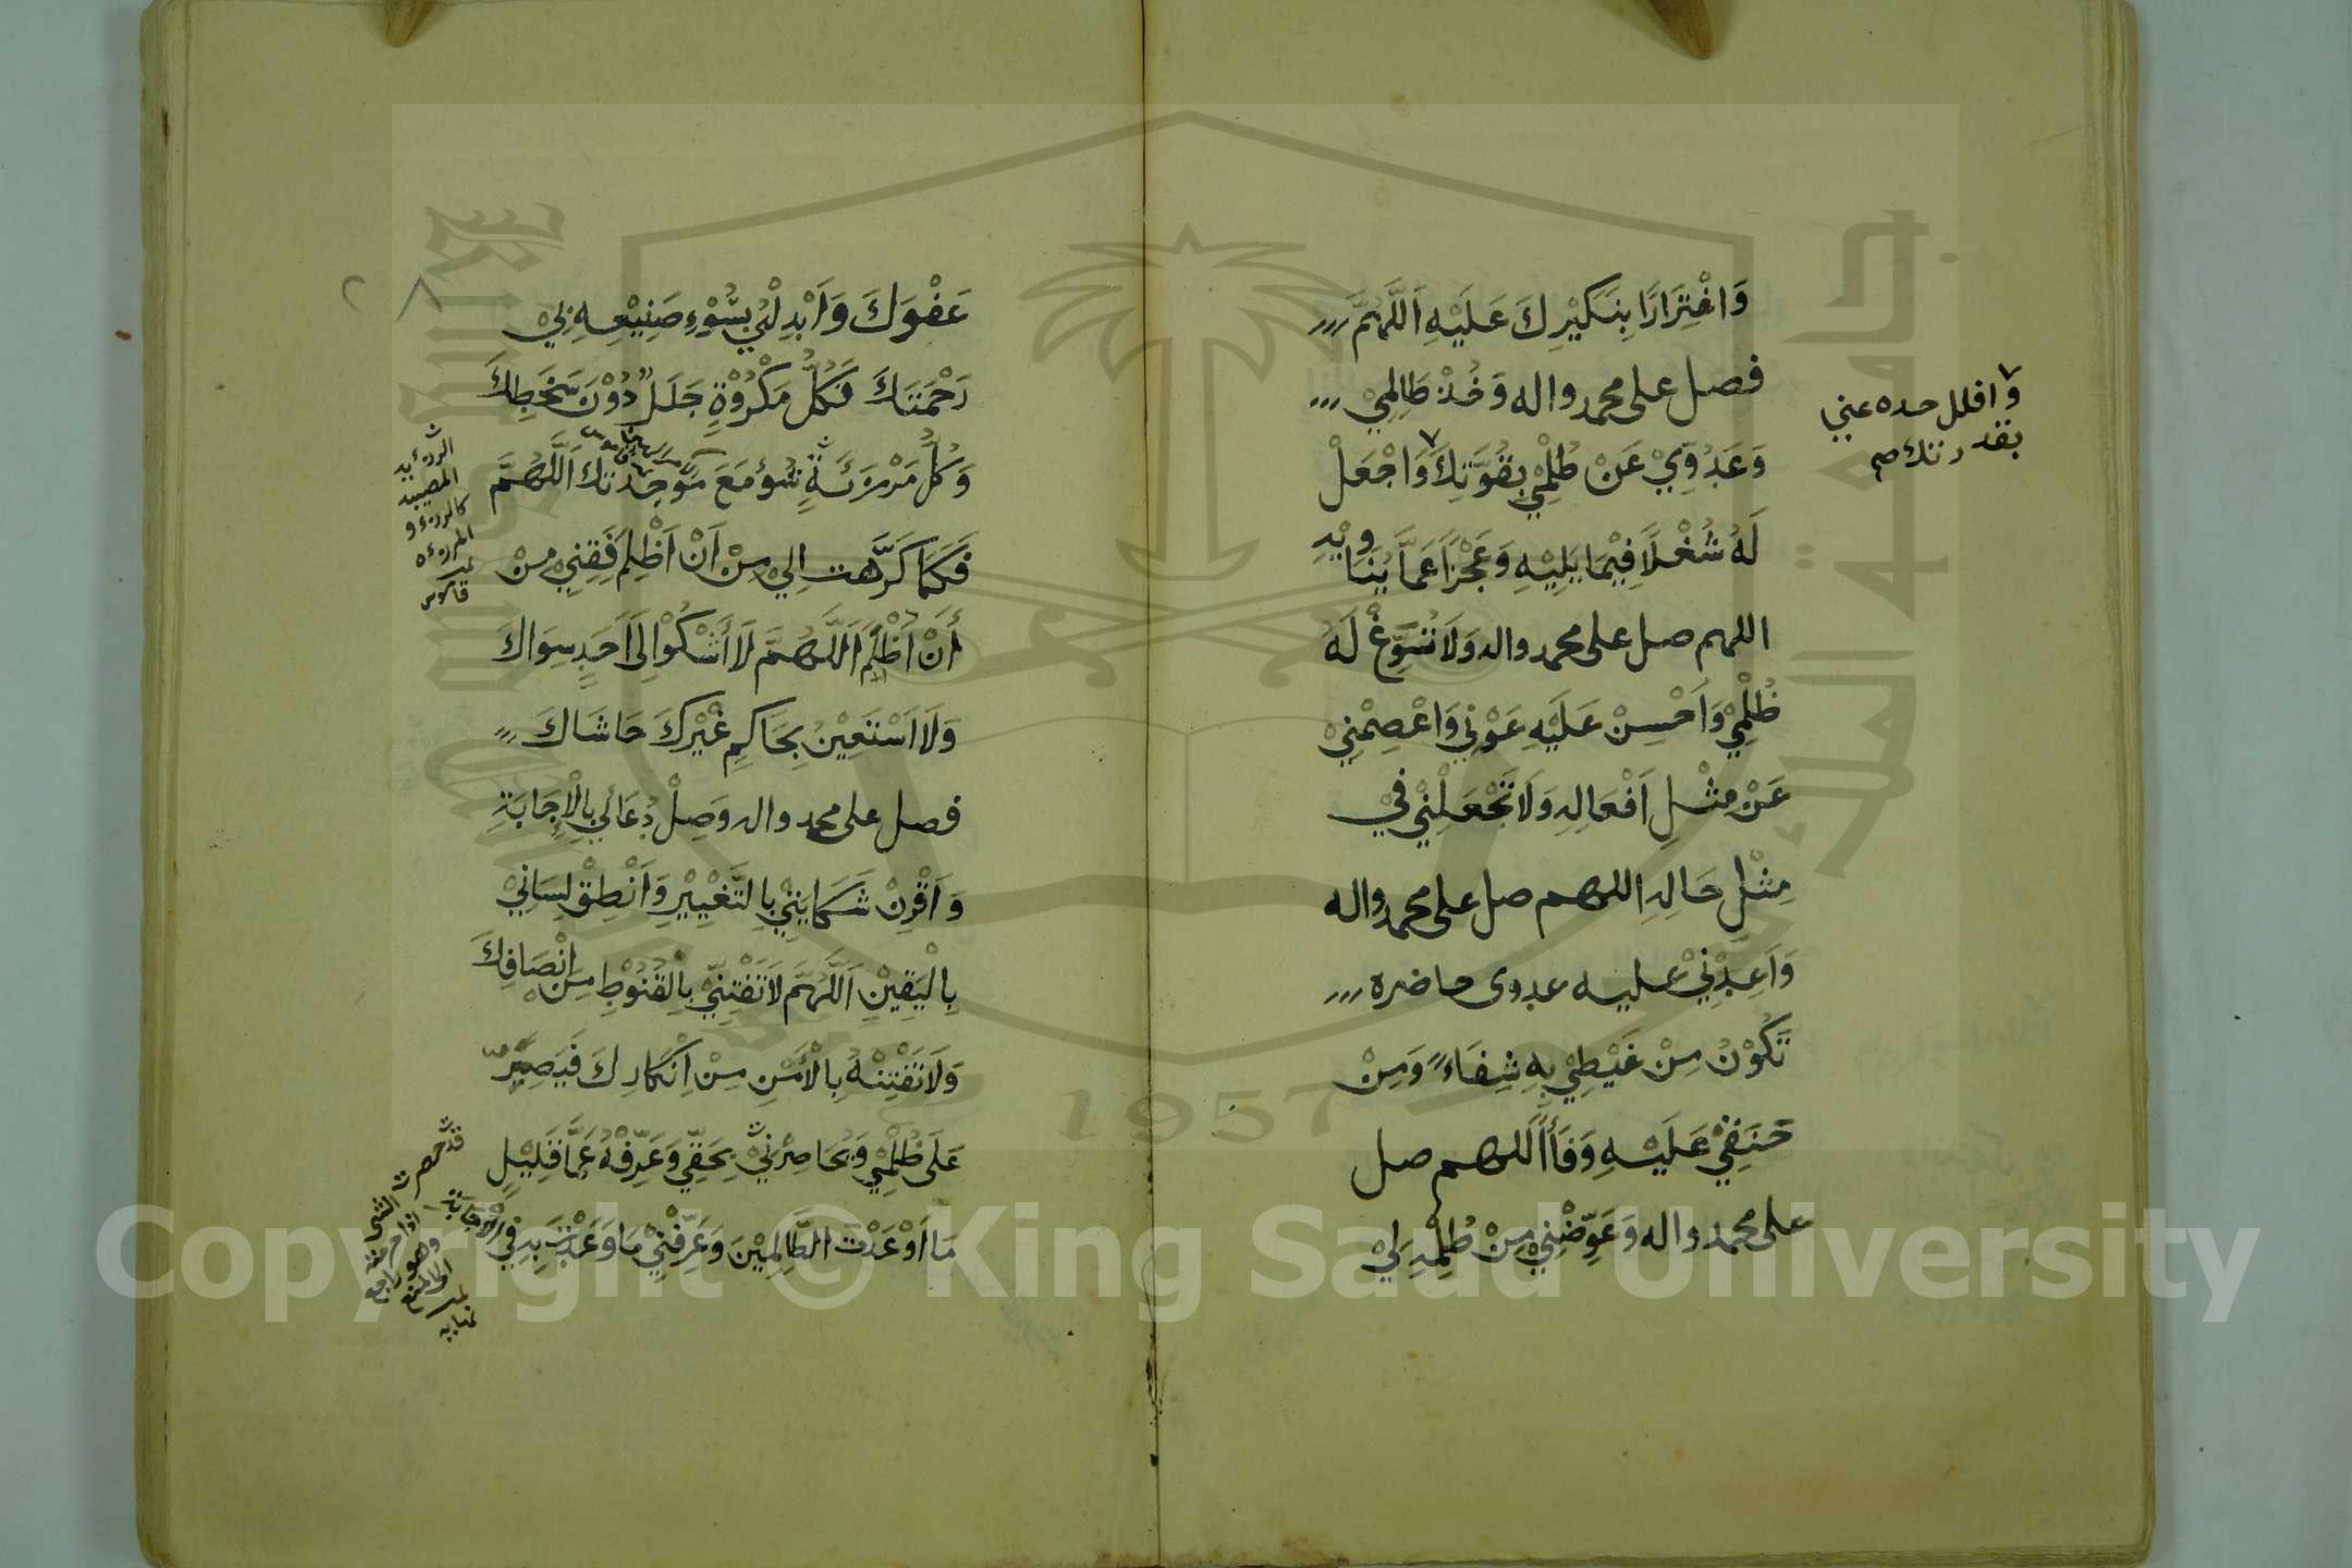 وَاغْتِرَارًا بِنَكِيْرِكَ عَلَيْهِ اَللَّهُمَّ
فصل على محمد واله وَخُذْ ظَالِمِيْ
وَعَدُوِّيْ عَنْ ظُلْمِيْ بِقُوَّتِكَ وَاجْعَلْ
وافلل حده عني
بقدرتك صح
لَهُ شُغْلًا فِيْمَا يَلِيْهِ وَعَجْزًا عَمَّا يُنَاوِيْهِ
اللهم صل على محمد واله وَلَا تُسَوِّغْ لَهُ
ظُلْمِيْ وَاَحْسِنْ عَلَيْهِ عَوْنِي وَاعْصِمْنِيْ
عَنْ مِثْلِ اَفْعَالِهِ وَلَا تَجْعَلْنِيْ فِيْ
مِثْلِ حَالِهِ اللهم صل على محمد واله
وَاَعِدْنِيْ عليه عدوى حاضره
تَكُوْنُ مِنْ غَيْظِيْ بِهِ شِفَاءً وَمِنْ
حَنَقِيْ عَلَيْهِ وَفَاً اَللهم صل
على محمد واله وَعَوِّضْنِيْ مِنْ ظُلْمِهِ لِيْ
عَفْوَكَ وَاَبْدِلْنِيْ بِسُوْءِ صَنِيْعِهِ بِيْ
رَحْمَتَكَ فَكُلُّ مَكْرُوْهٍ جَلَلٌ دُوْنَ سَخَطِكَ
وَكُلُّ مَرْزِئَةٍ سُوءٌ مَعَ مَوْجِدَتِكَ اَللَّهُمَّ
المصيبة
فَكَمَا كَرَّهت اِلَيْ مِنْ اَنْ اَظْلِمَ فَقِنِيْ مِنْ
أَنْ اُظْلَمَ اَللَّهُمَّ لَا أَشْكُوْ اِلَى اَحَدٍ سِوَاكَ
وَلَا اَسْتَعِيْنُ بِحَاكِمٍ غَيْرِكَ حَاشَاكَ
فصل على محمد واله وَصِلْ دُعَائِي بِالْاِجَابَةِ
وَاَقْرِنْ شَكَايَتِيْ بِالتَّغْيِيْرِ وَاَنْطِقْ لِسَانِيْ
بِالْيَقِيْنِ اَللَّهُمَّ لَا تَفْتِنِّيْ بِالْقُنُوْطِ مِنْ اِنْصَافِكَ
وَلَا تَفْتِنْهُ بِالْأَمْنِ مِنْ اِنْكَارِكَ فَيَصِيْرَ
عَلَى ظُلْمِيْ وَيُحَاصِرْنِيْ بِحَقِّيْ وَعَرِّفْهُ عَمَّا قَلِيْلٍ
مَا اَوْعَدْتَ الظَّالِمِيْنَ وَعَرِّفْنِيْ مَا وَعَدْتَ بِهِ فِي الْاِجَابَةِ
Copyright © King Saud University
1957